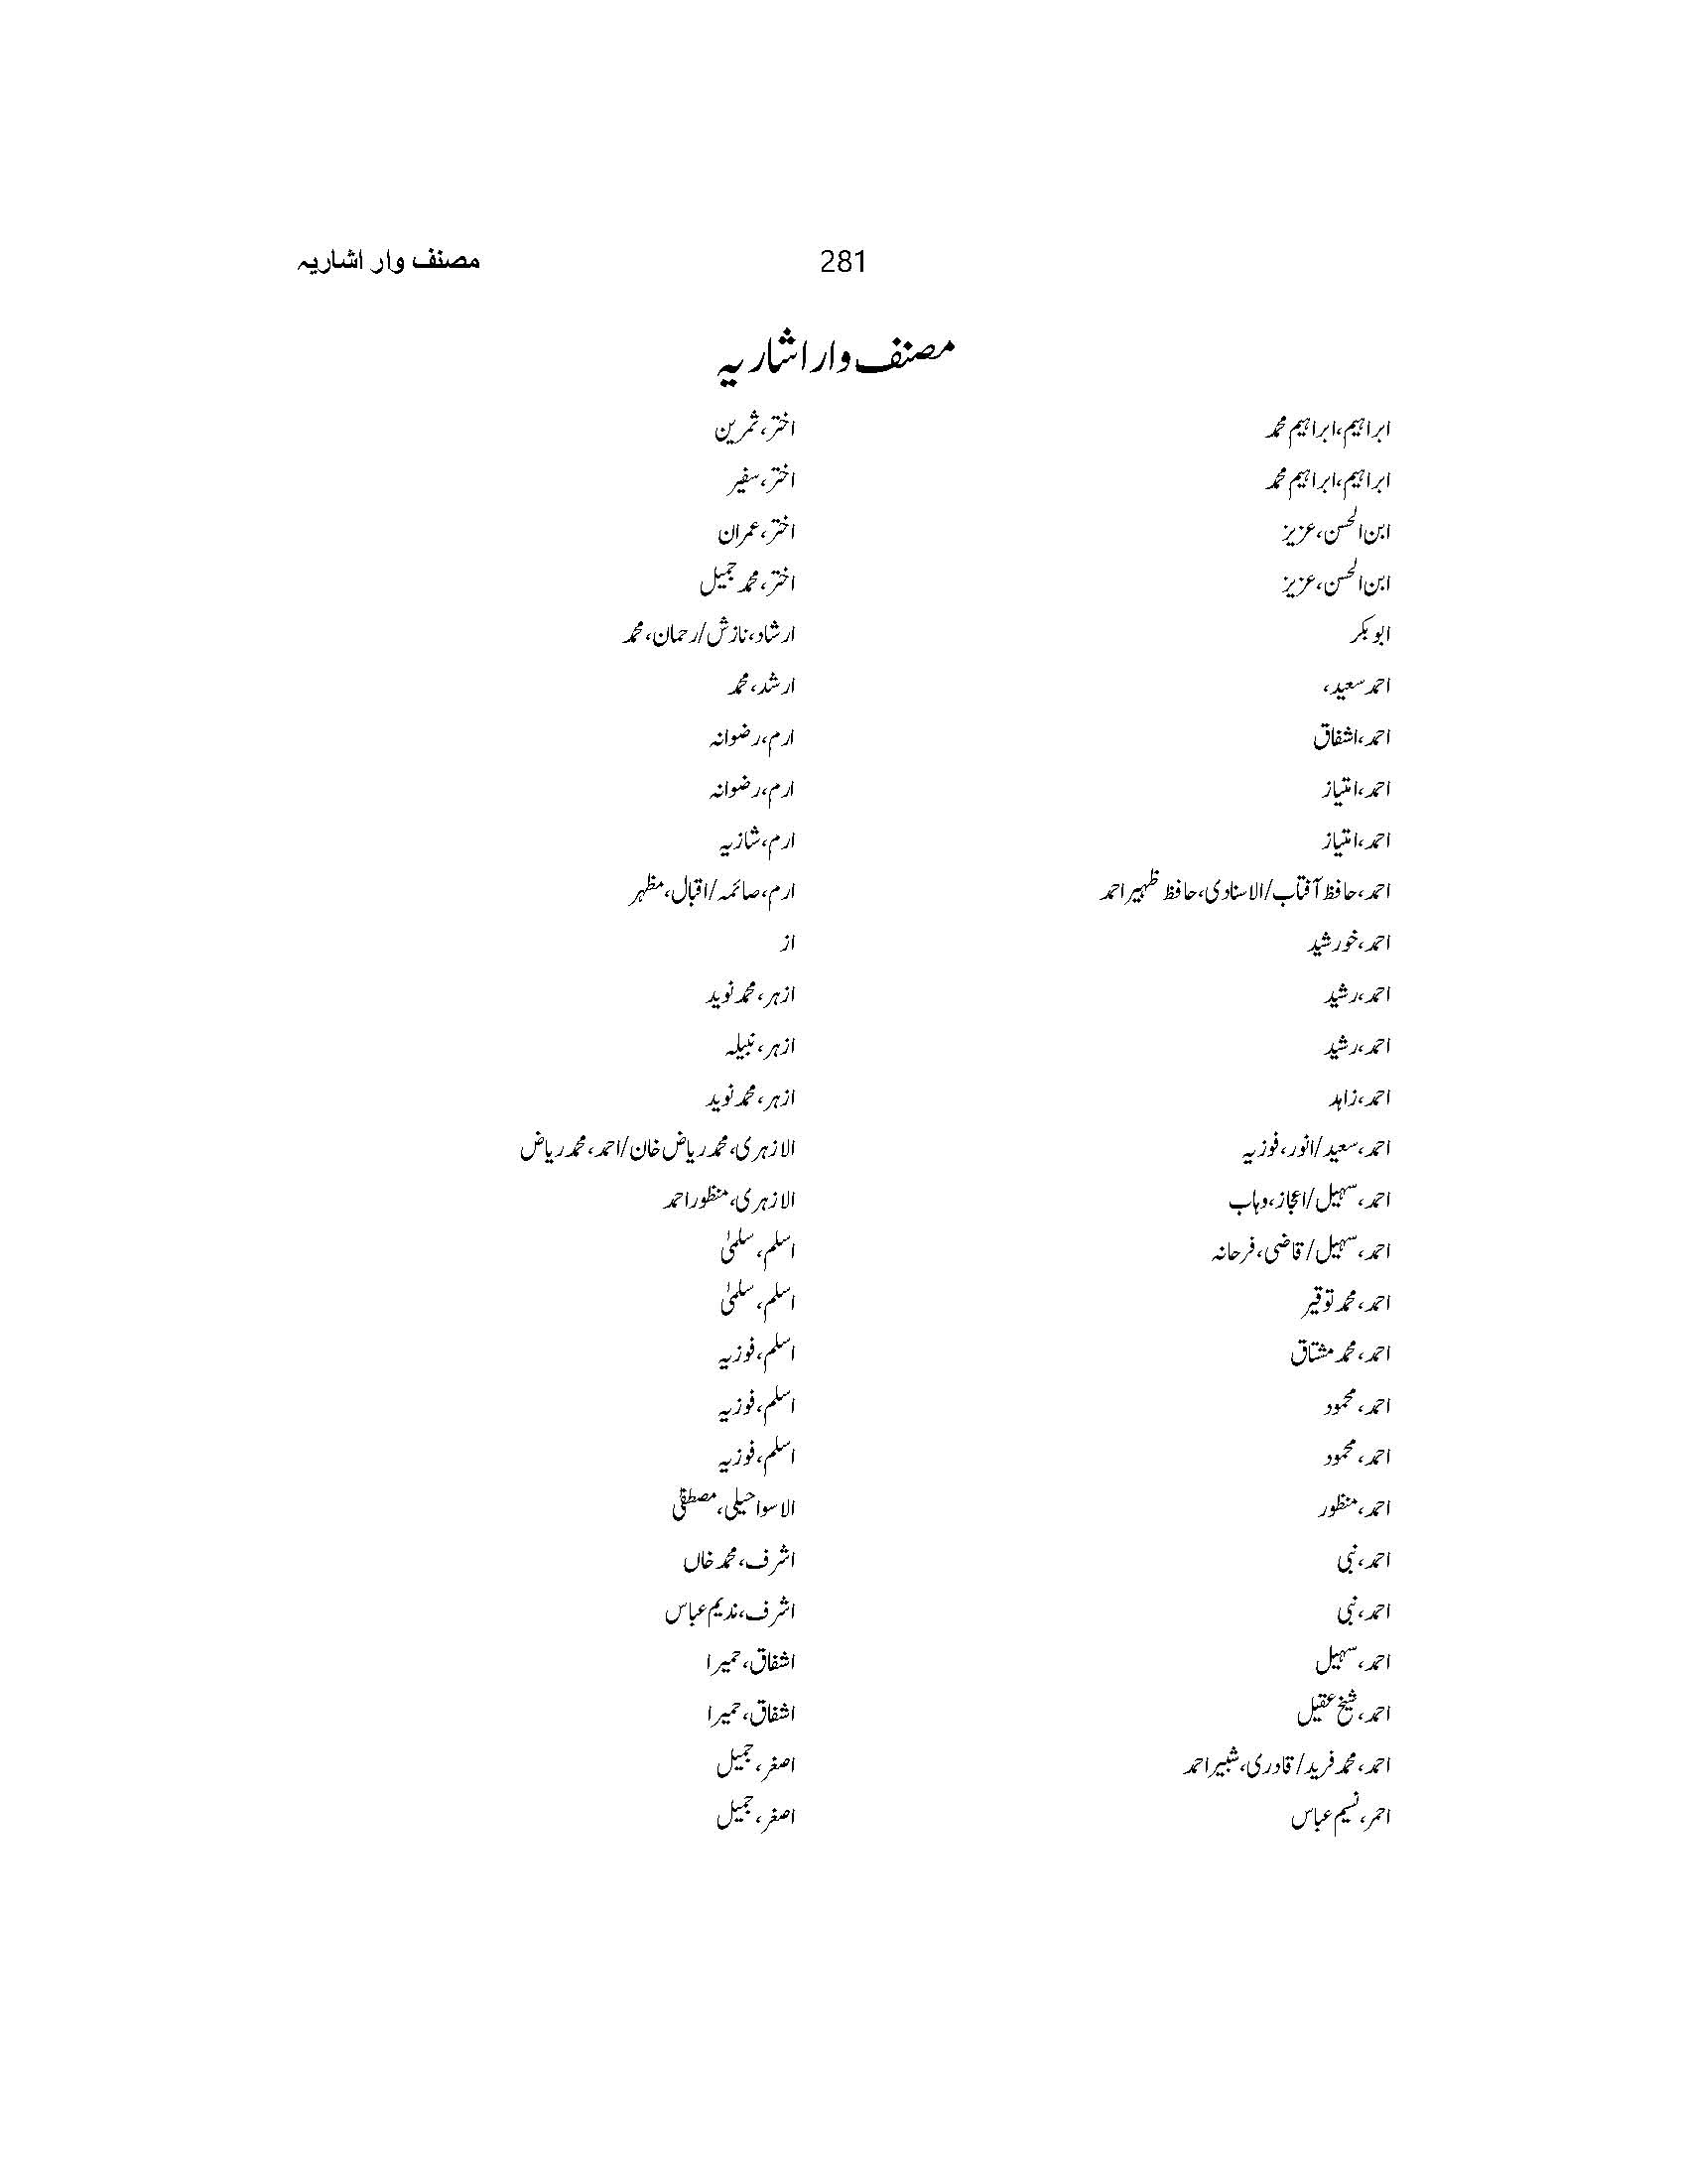 281
مصنف وار اشاریہ
مصنف وار اشاریہ
ابراہیم، ابراہیم محمد
ابراہیم، ابراہیم محمد
ابن الحسن، عزیز
ابن الحسن، عزیز
ابو بکر
احمد سعید،
احمد، اشفاق
احمد، امتیاز
احمد، امتیاز
احمد، حافظ آفتاب/الاسنادی، حافظ ظہیر احمد
احمد، خورشید
احمد، رشید
احمد، رشید
احمد، زاہد
احمد، سعید/انور، فوزیہ
احمد، سہیل/اعجاز، وہاب
احمد، سہیل/قاضی، فرحانہ
احمد، محمد توقیر
احمد، محمد مشتاق
احمد، محمود
احمد، محمود
احمد، منظور
احمد، نبی
احمد، نبی
احمد، سہیل
احمد، شیخ عقیل
احمد، محمد فرید/قادری، شبیر احمد
احمر، نسیم عباس
اختر، ثمرین
اختر، سفیر
اختر، عمران
اختر، محمد جمیل
ارشاد، نازش/رحمان، محمد
ارشد، محمد
ارم، رضوانہ
ارم، رضوانہ
ارم، شازیہ
ارم، صائمہ/اقبال، مظہر
از
ازہر، محمد نوید
ازہر، نبیلہ
ازہر، محمد نوید
الازہری، محمد ریاض خان/احمد، محمد ریاض
الازہری، منظور احمد
اسلم، سلمیٰ
اسلم، سلمیٰ
اسلم، فوزیہ
اسلم، فوزیہ
اسلم، فوزیہ
الاسواحیلی، مصطفٰی
اشرف، محمد خاں
اشرف، ندیم عباس
اشفاق، حمیرا
اشفاق، حمیرا
اصغر، جمیل
اصغر، جمیل